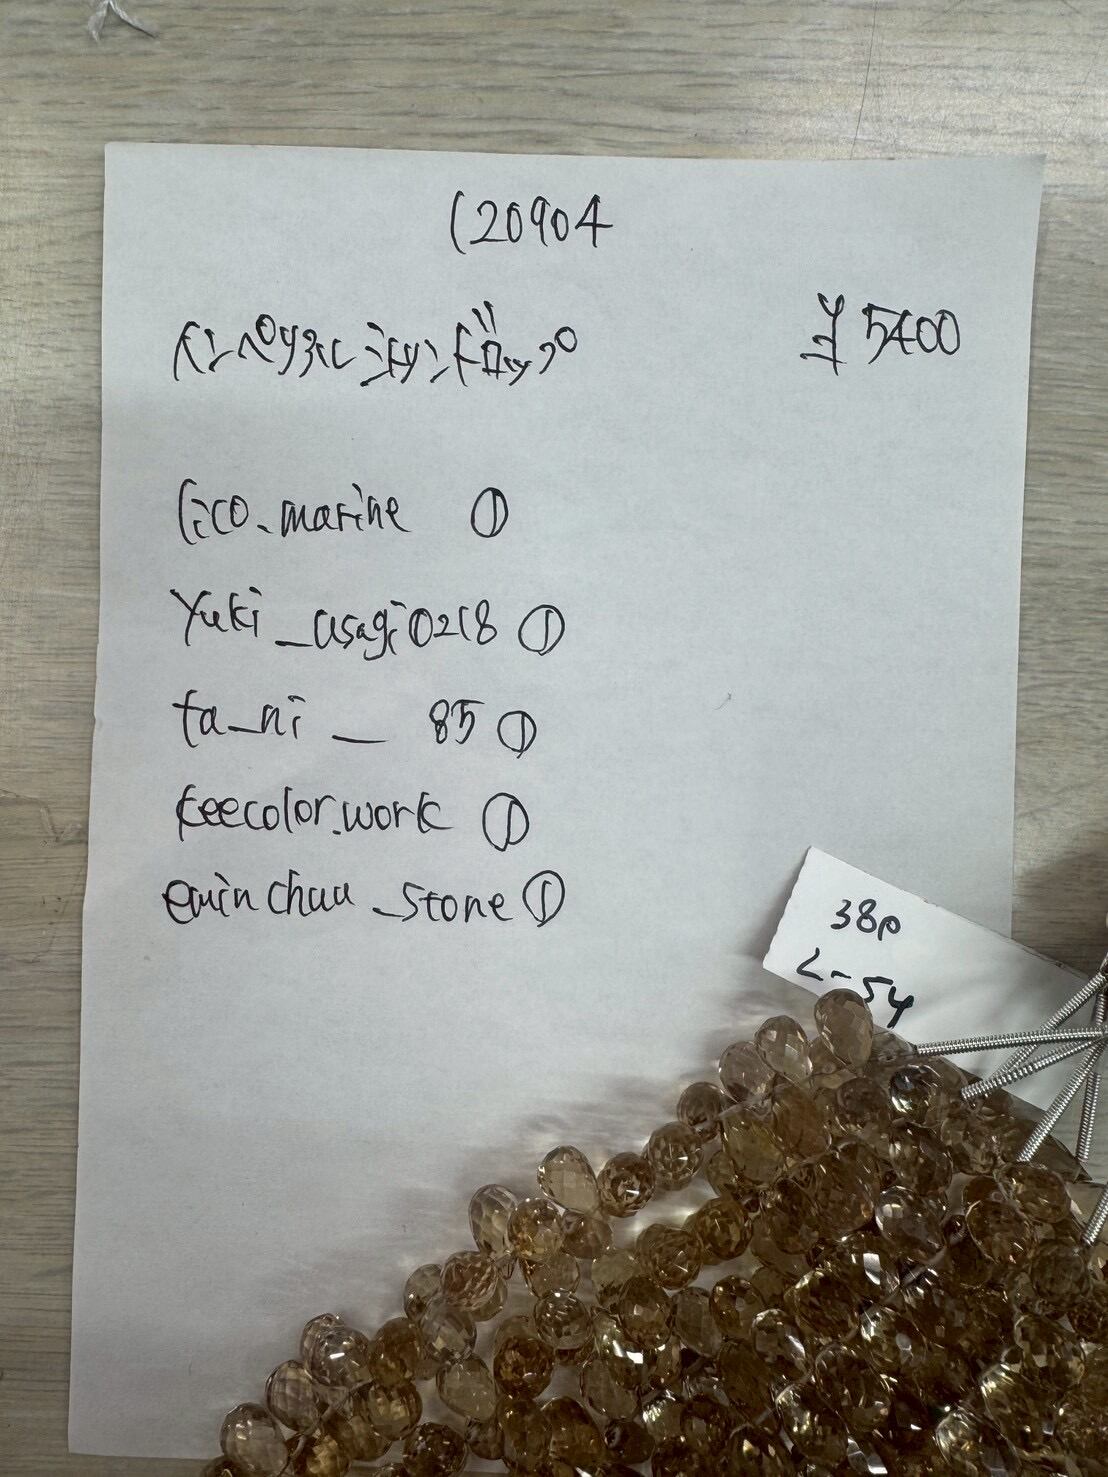 120904
インペリアルシャンドロップ ¥5400
lico_marine ①
yuki_usagi0218 ①
ta_ni__85 ①
keecolor.work ①
eminchuu_stone ①
38p
L-54